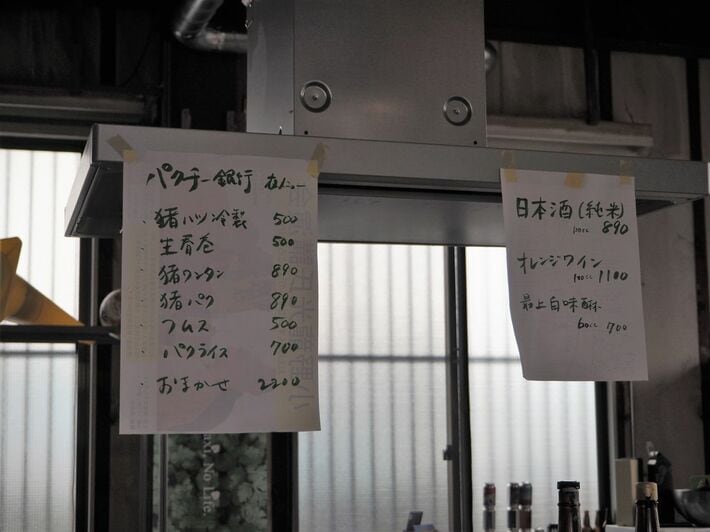 パクチー銀行 夜メニュー
・猪ハツ冷製 500
・生春巻 500
・猪ワンタン 890
・猪パク 890
・フムス 500
・パクライス 700
・おまかせ 2200
日本酒(純米)
100cc 890
オレンジワイン
100cc 1100
最上白味醂
60cc 700
No Life.